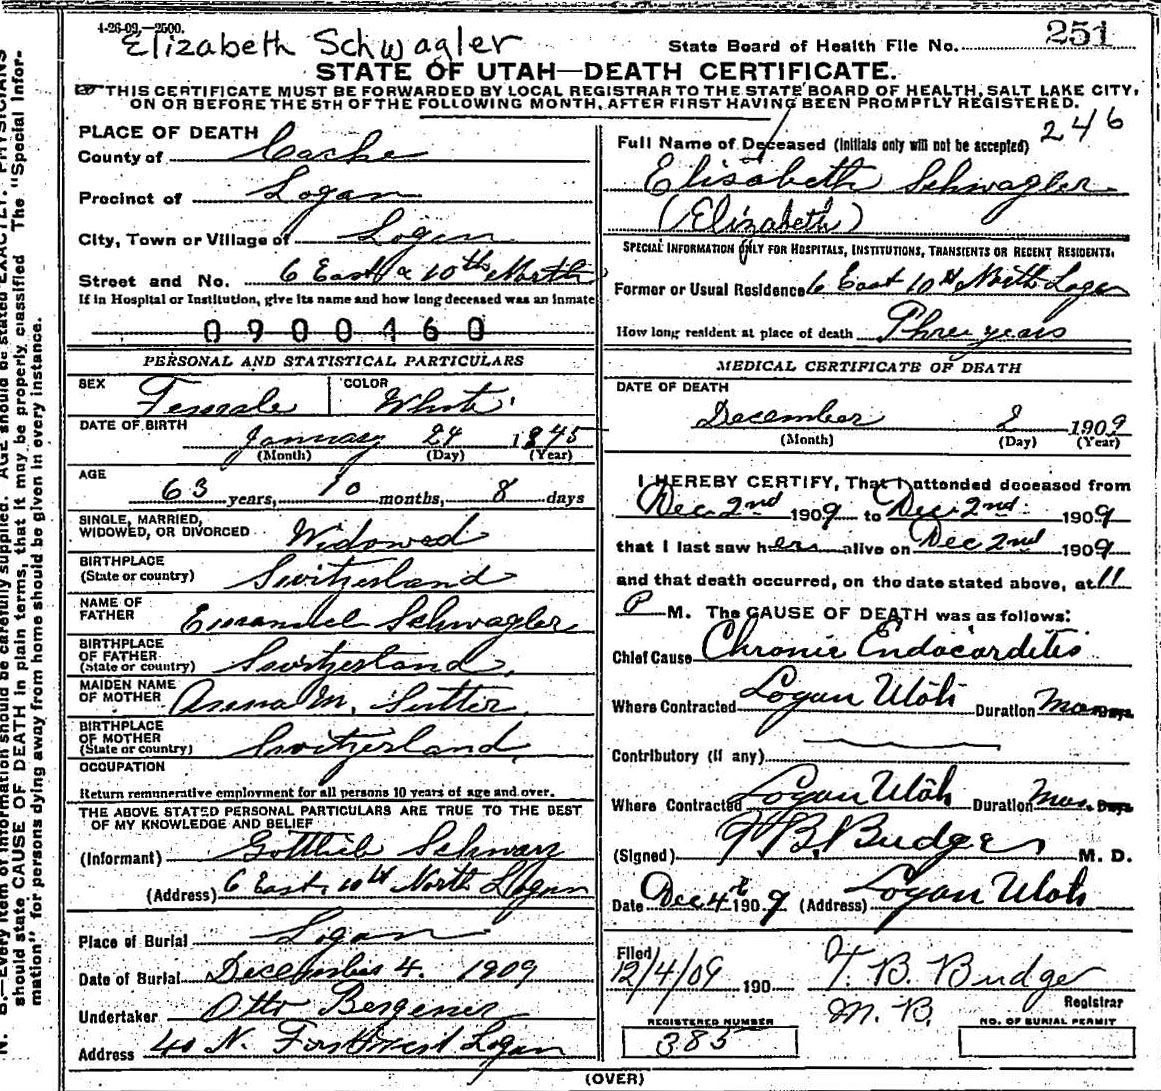 4-26-09.—2500.
Elizabeth Schwagler
State Board of Health File No. 251
STATE OF UTAH—DEATH CERTIFICATE.
THIS CERTIFICATE MUST BE FORWARDED BY LOCAL REGISTRAR TO THE STATE BOARD OF HEALTH, SALT LAKE CITY,
ON OR BEFORE THE 5TH OF THE FOLLOWING MONTH, AFTER FIRST HAVING BEEN PROMPTLY REGISTERED.
PLACE OF DEATH
County of Cache
Precinct of Logan
City, Town or Village of Logan
Street and No. 6 East & 10th North
If in Hospital or Institution, give its name and how long deceased was an inmate
0 9 0 0 4 6 0
PERSONAL AND STATISTICAL PARTICULARS
SEX Female COLOR White
DATE OF BIRTH January 24 1845
(Month) (Day) (Year)
AGE 63 years, 10 months, 8 days
SINGLE, MARRIED,
WIDOWED, OR DIVORCED Widowed
BIRTHPLACE
(State or country) Switzerland
NAME OF
FATHER Emanuel Schwagler
BIRTHPLACE
OF FATHER
(State or country) Switzerland
MAIDEN NAME
OF MOTHER Anna M. Sutter
BIRTHPLACE
OF MOTHER
(State or country) Switzerland
OCCUPATION
Return remunerative employment for all persons 10 years of age and over.
THE ABOVE STATED PERSONAL PARTICULARS ARE TRUE TO THE BEST
OF MY KNOWLEDGE AND BELIEF
(Informant) Gottlieb Schwarz
(Address) 6 East, 10th North Logan
Place of Burial Logan
Date of Burial December 4. 1909
Undertaker Otto Bergener
Address 40 N. First West Logan
246
Full Name of Deceased (Initials only will not be accepted)
Elisabeth Schwagler
(Elizabeth)
SPECIAL INFORMATION ONLY FOR HOSPITALS, INSTITUTIONS, TRANSIENTS OR RECENT RESIDENTS.
Former or Usual Residence 6 East 10th North Logan
How long resident at place of death Three years
MEDICAL CERTIFICATE OF DEATH
DATE OF DEATH
December 2 1909
(Month) (Day) (Year)
I HEREBY CERTIFY, That I attended deceased from
Dec 2nd 1909 to Dec 2nd 1909
that I last saw her alive on Dec 2nd 1909
and that death occurred, on the date stated above, at 11
P M. The CAUSE OF DEATH was as follows:
Chief Cause Chronic Endocarditis
Where Contracted Logan Utah Duration Mos. Days
Contributory (if any)
Where Contracted Logan Utah Duration Mos. Days
(Signed) T B. Budge M. D.
Date Dec 4th 1909 (Address) Logan Utah
Filed
12/4/09 190 T. B. Budge
M. D. Registrar
REGISTERED NUMBER
385
NO. OF BURIAL PERMIT
(OVER)
N. B.—Every item of information should be carefully supplied. AGE should be stated EXACTLY. PHYSICIANS
should state CAUSE OF DEATH in plain terms, that it may be properly classified The "Special Infor-
mation" for persons dying away from home should be given in every instance.